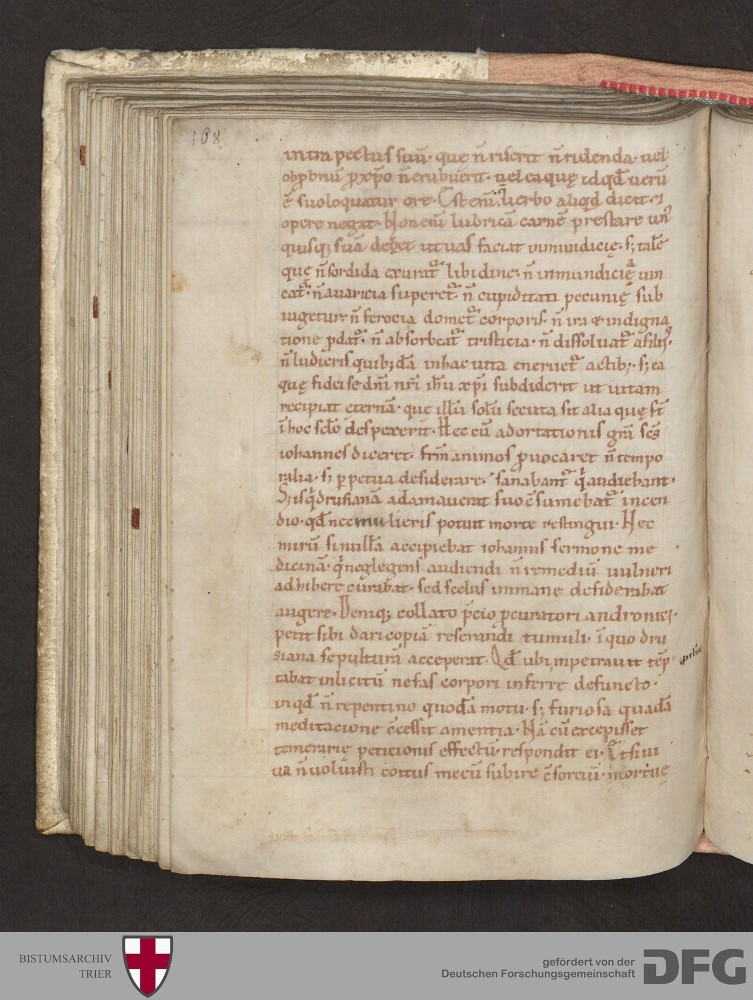 108
intra pectus suū· que n̄ riserit n̄ ridenda· uel
obpbriū p xp̄o n̄ erubuerit· uel ea quę id qd̄ uerū
ē suo loquatur ore· Est enī· uerbo aliqd dicit· &
opere negat· Non enī lubricā carnē prestare un
quisq; suā debet ut uas faciat inmundicię· s; talē
quę n̄ sordida exurat libidine· n̄ inmundicię uin
cat· n̄ auaricia superet· n̄ cupiditati pecunię sub
iugetur· n̄ ferocia domet corporis· n̄ ira & indigna
tione pdat· n̄ absorbeat tristicia· n̄ dissoluat a filiis·
n̄ ludicris quib; dā in hac uita eneruet actib;· s; ea
quę fidei se dn̄i nr̄i ih̄u xp̄i subdiderit ut uitam
recipiat eternā· que illū solū secuta sit alia quę st̄
ī hoc sc̄lo despexerit· Hec cū adortationis grā sc̄s
iohannes diceret· frm̄ animos puocaret n̄ tempo
ralia· s; ppetua desiderare· sanabant qui audiebant·
S; is q̇ drusianā adamauerat suo c̄sumebat incen
dio· qd̄ nec mulieris potuit morte restingui· Nec
mirū si nullā accipiebat iohannis sermone me
dicinā· q̇ neglegens audiendi n̄ remediū uulneri
adhibere curabat· sed scelus inmane desiderabat
augere· Deniq; collato p̄cio pcuratori andronici·
petit sibi dari copiā reserandi tumuli· ī quo dru
siana sepulturā acceperat· Qd̄ ubi impetrauit tēp
tabat inlicitū nefas corpori inferre defuncto·
in qd̄ n̄ repentino quodā motu· s; furiosa quadā
meditacione c̄cessit amentia· Nā cū excepisset
temerarię peticionis effectū· respondit ei· Q̇ tsi ui
ua n̄ voluisti coitus mecū subire c̄sorciū· mortuę
BISTUMSARCHIV
TRIER
gefördert von der
Deutschen Forschungsgemeinschaft
DFG